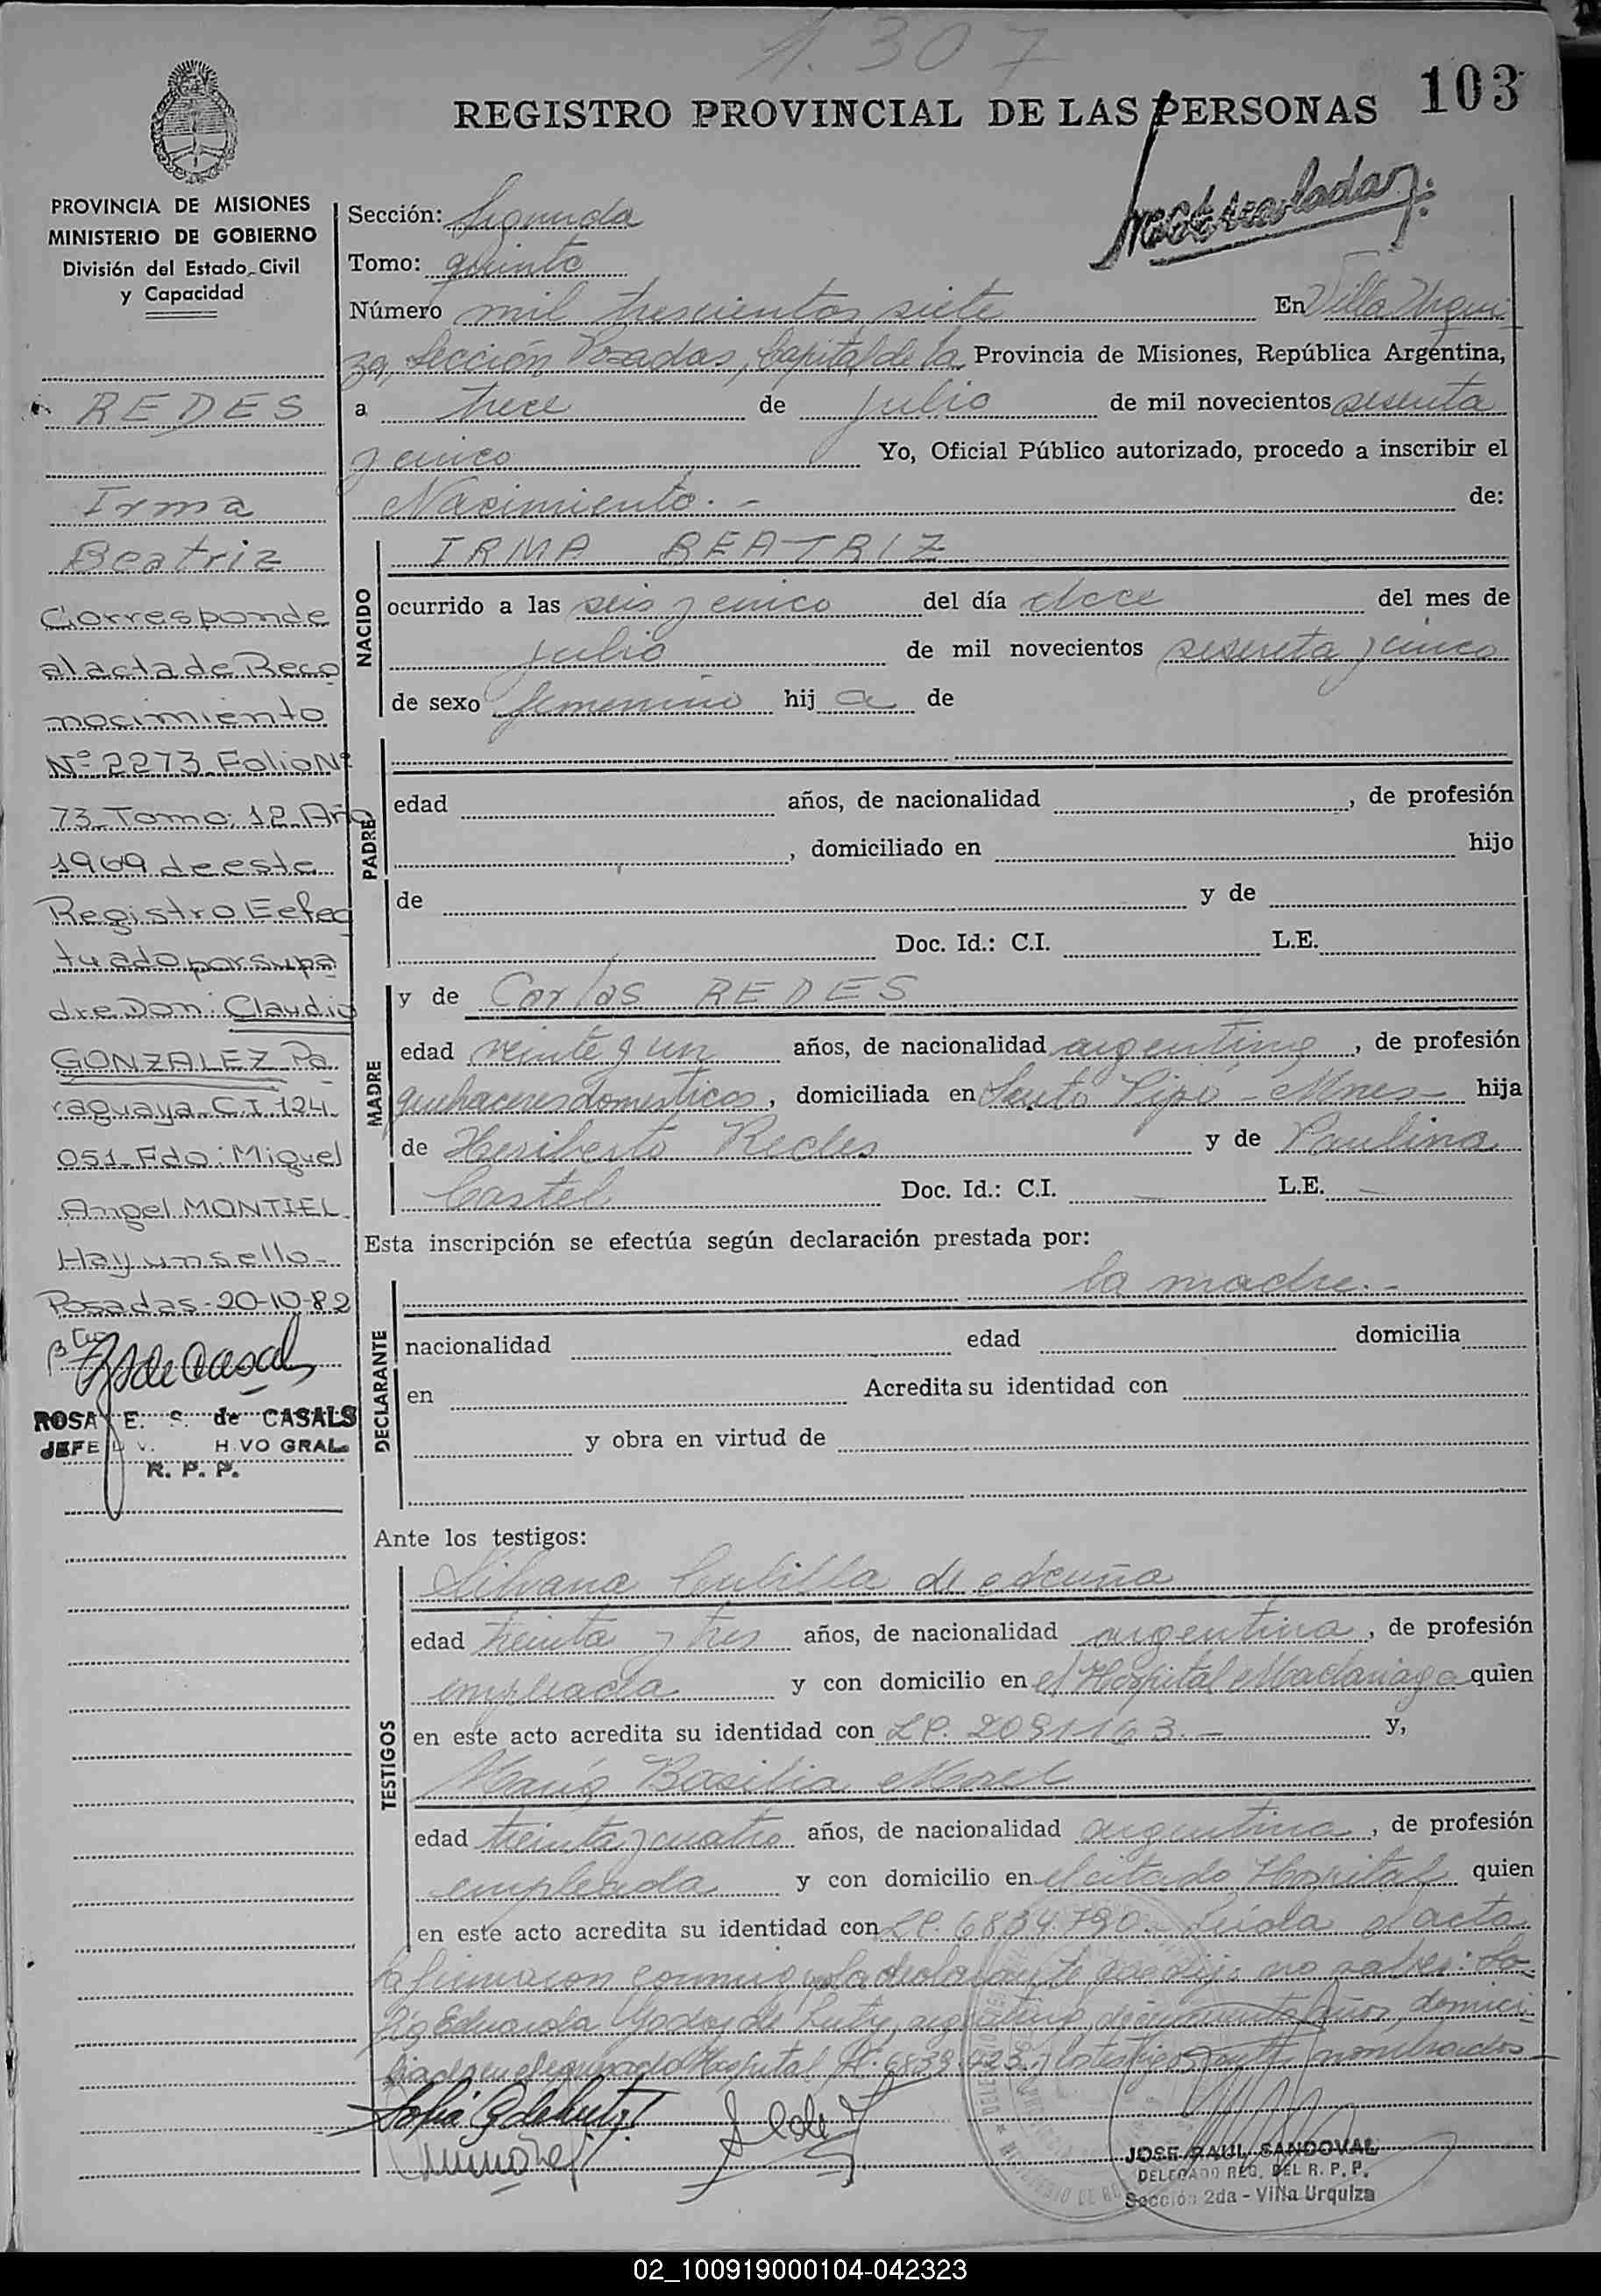 1.307
103
REGISTRO PROVINCIAL DE LAS PERSONAS
PROVINCIA DE MISIONES
MINISTERIO DE GOBIERNO
División del Estado Civil
y Capacidad
REDES
Irma
Beatriz
Corresponde
al acta de Reco
nocimiento
Nº 2273 Folio Nº
73 Tomo: 12 Año
1969 de este
Registro Efec
tuado por su pa
dre Don: Claudio
GONZALEZ Pa
raguaya C.I 124.
051 Fdo: Miguel
Angel MONTIEL
Hay un sello
Posadas-20-10-82
ROSA E. S. de CASALS
JEFE
R. P. P.
Sección: Segunda
Tomo: quinto
Número mil trescientos siete En Villa Urqui
za, Sección Posadas, Capital de la Provincia de Misiones, República Argentina,
a trece de julio de mil novecientos sesenta
y cinco Yo, Oficial Público autorizado, procedo a inscribir el
Nacimiento.- de:
NACIDO
IRMA BEATRIZ
ocurrido a las seis y cinco del día doce del mes de
julio de mil novecientos sesenta y cinco
de sexo femenino hij a de
PADRE
edad años, de nacionalidad , de profesión
, domiciliado en hijo
de y de
Doc. Id.: C.I. L.E.
MADRE
y de Carlos REDES
edad veinte y un años, de nacionalidad argentina, de profesión
quehaceres domesticos, domiciliada en Santo Pipó - Mnes - hija
de Heriberto Redes y de Paulina
Castel Doc. Id.: C.I. — L.E. —
Esta inscripción se efectúa según declaración prestada por:
DECLARANTE
la madre.-
nacionalidad edad domicilia
en Acredita su identidad con
y obra en virtud de
Ante los testigos:
TESTIGOS
Silvana de Acuña
edad treinta y tres años, de nacionalidad argentina, de profesión
empleada y con domicilio en el Hospital Madariaga quien
en este acto acredita su identidad con 2091163.- y,
María Basilia Morel
edad treinta y cuatro años, de nacionalidad argentina, de profesión
empleada y con domicilio en el citado Hospital quien
en este acto acredita su identidad con 6834.790.- Leída el acta
la firmaron conmigo, por la declarante que dijo no saber: So
fía Eduarda Godoy de argentina, de años, domici
liada en el Hospital 6839.423 y los testigos nombrados
JOSE RAUL SANDOVAL
DELEGADO REG. DEL R. P. P.
Sección 2da - Villa Urquiza
02_100919000104-042323